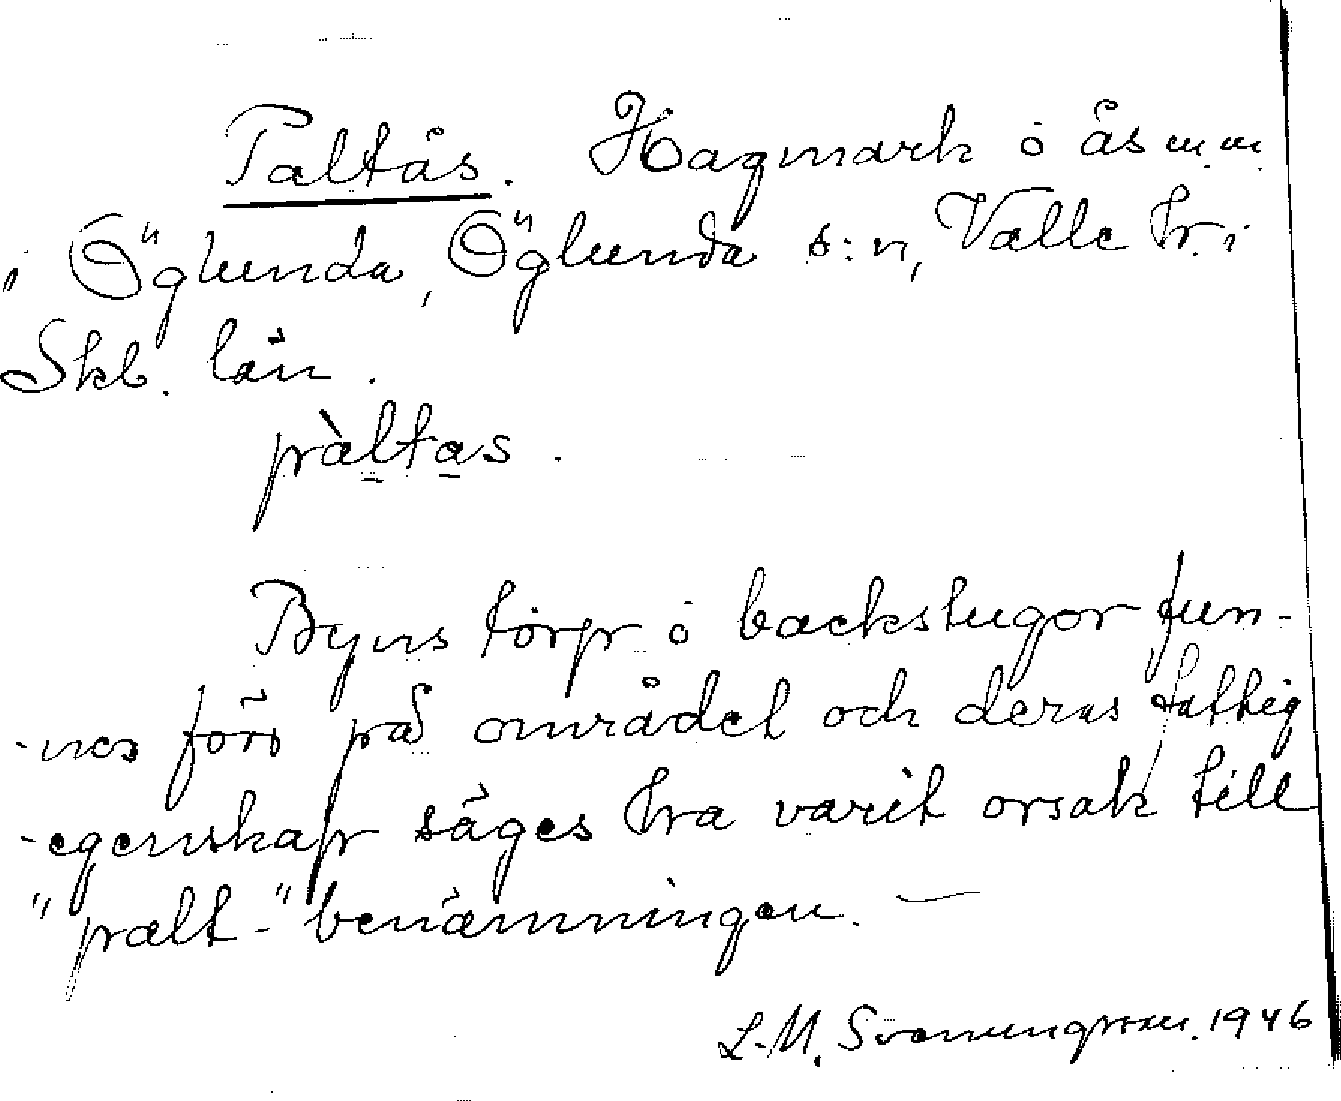 Paltås. Hagmark o ås m.m.
i Öglunda, Öglunda s:n, Valle hr. i
Skb. län.
pàltas.
Byns torp o backstugor fun-
-nos förr på området och deras fattig
-egenskap säges ha varit orsak till
"palt-" benämningen. —
L.M. Svenungsson. 1946